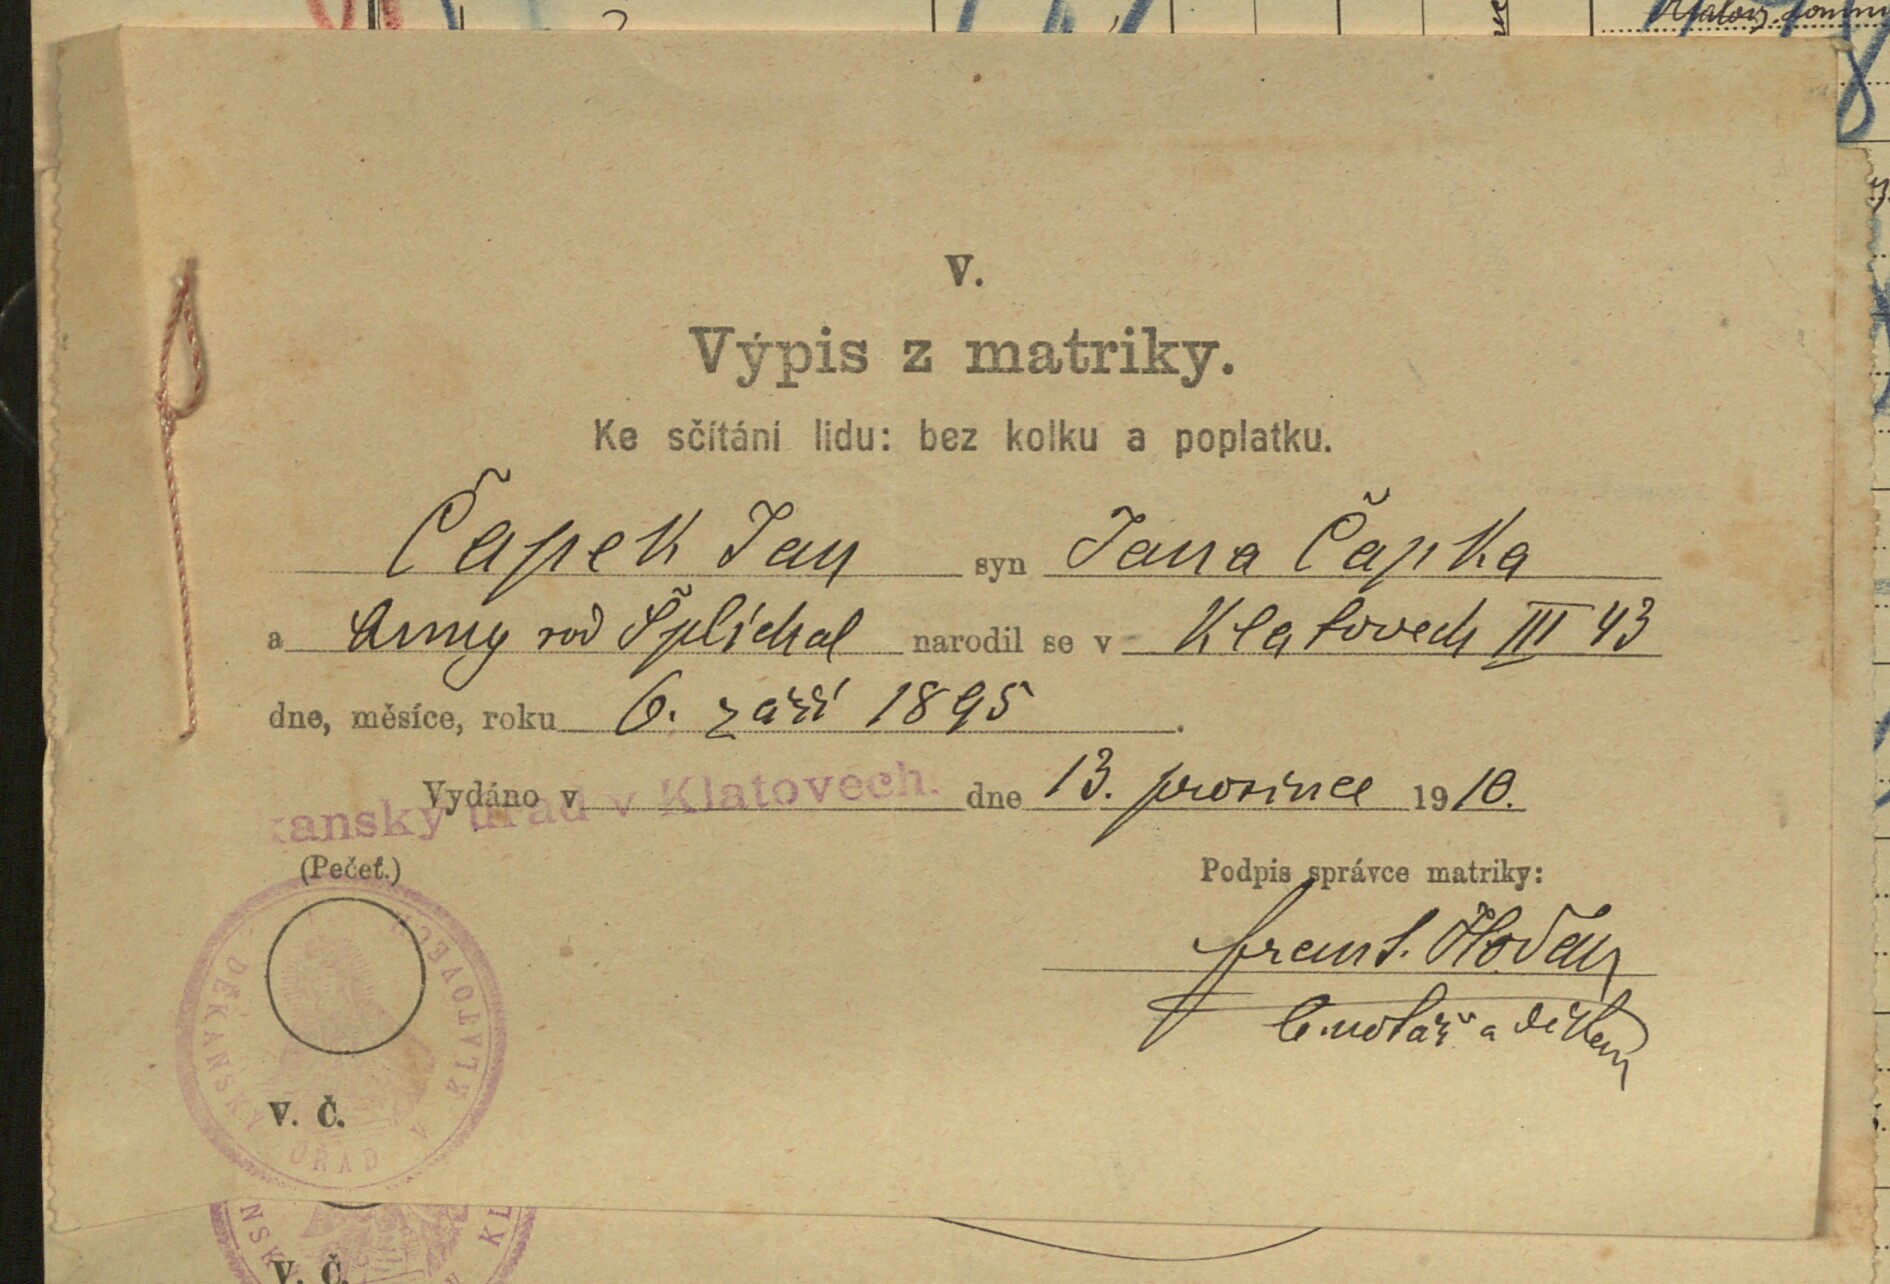 V.
Výpis z matriky.
Ke sčítání lidu: bez kolku a poplatku.
Čapek Jan syn Jana Čapka
a Anny roz Šplíchal narodil se v Klatovech III 43
dne, měsíce, roku 6. září 1895.
Vydáno v kanský úřad v Klatovech. dne 13. prosince 1910.
(Pečeť.)
Podpis správce matriky:
Frant. Hodan
b. notář a děkan
DĚKANSKÝ ÚŘAD V KLATOVECH
V. Č.
NSK KL
V. Č.